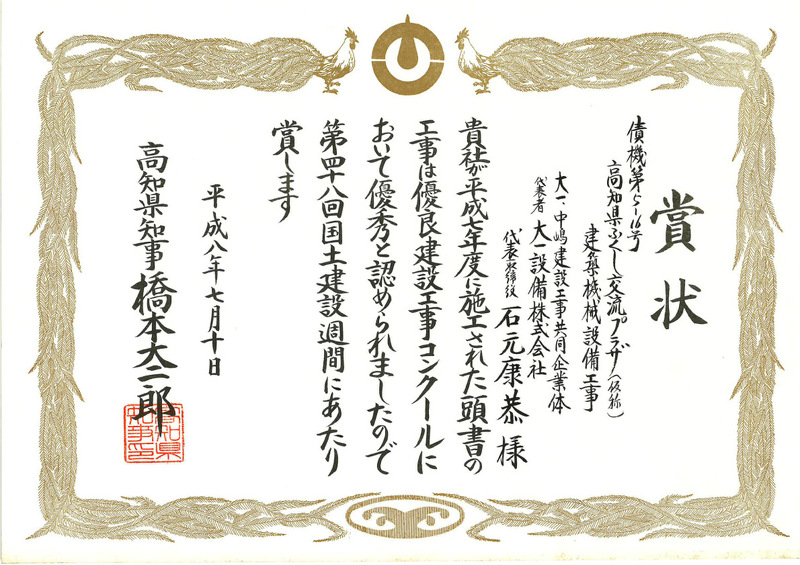 賞状
債機第5-16号
高知県ふくし交流プラザ(仮称)
建築機械設備工事
大一、中嶋建設工事共同企業体
代表者 大一設備株式会社
代表取締役 石元康恭様
貴社が平成七年度に施工された頭書の
工事は優良建設工事コンクールに
おいて優秀と認められましたので
第四十八回国土建設週間にあたり
賞します
平成八年七月十日
高知県知事 橋本大二郎
高知県知事印